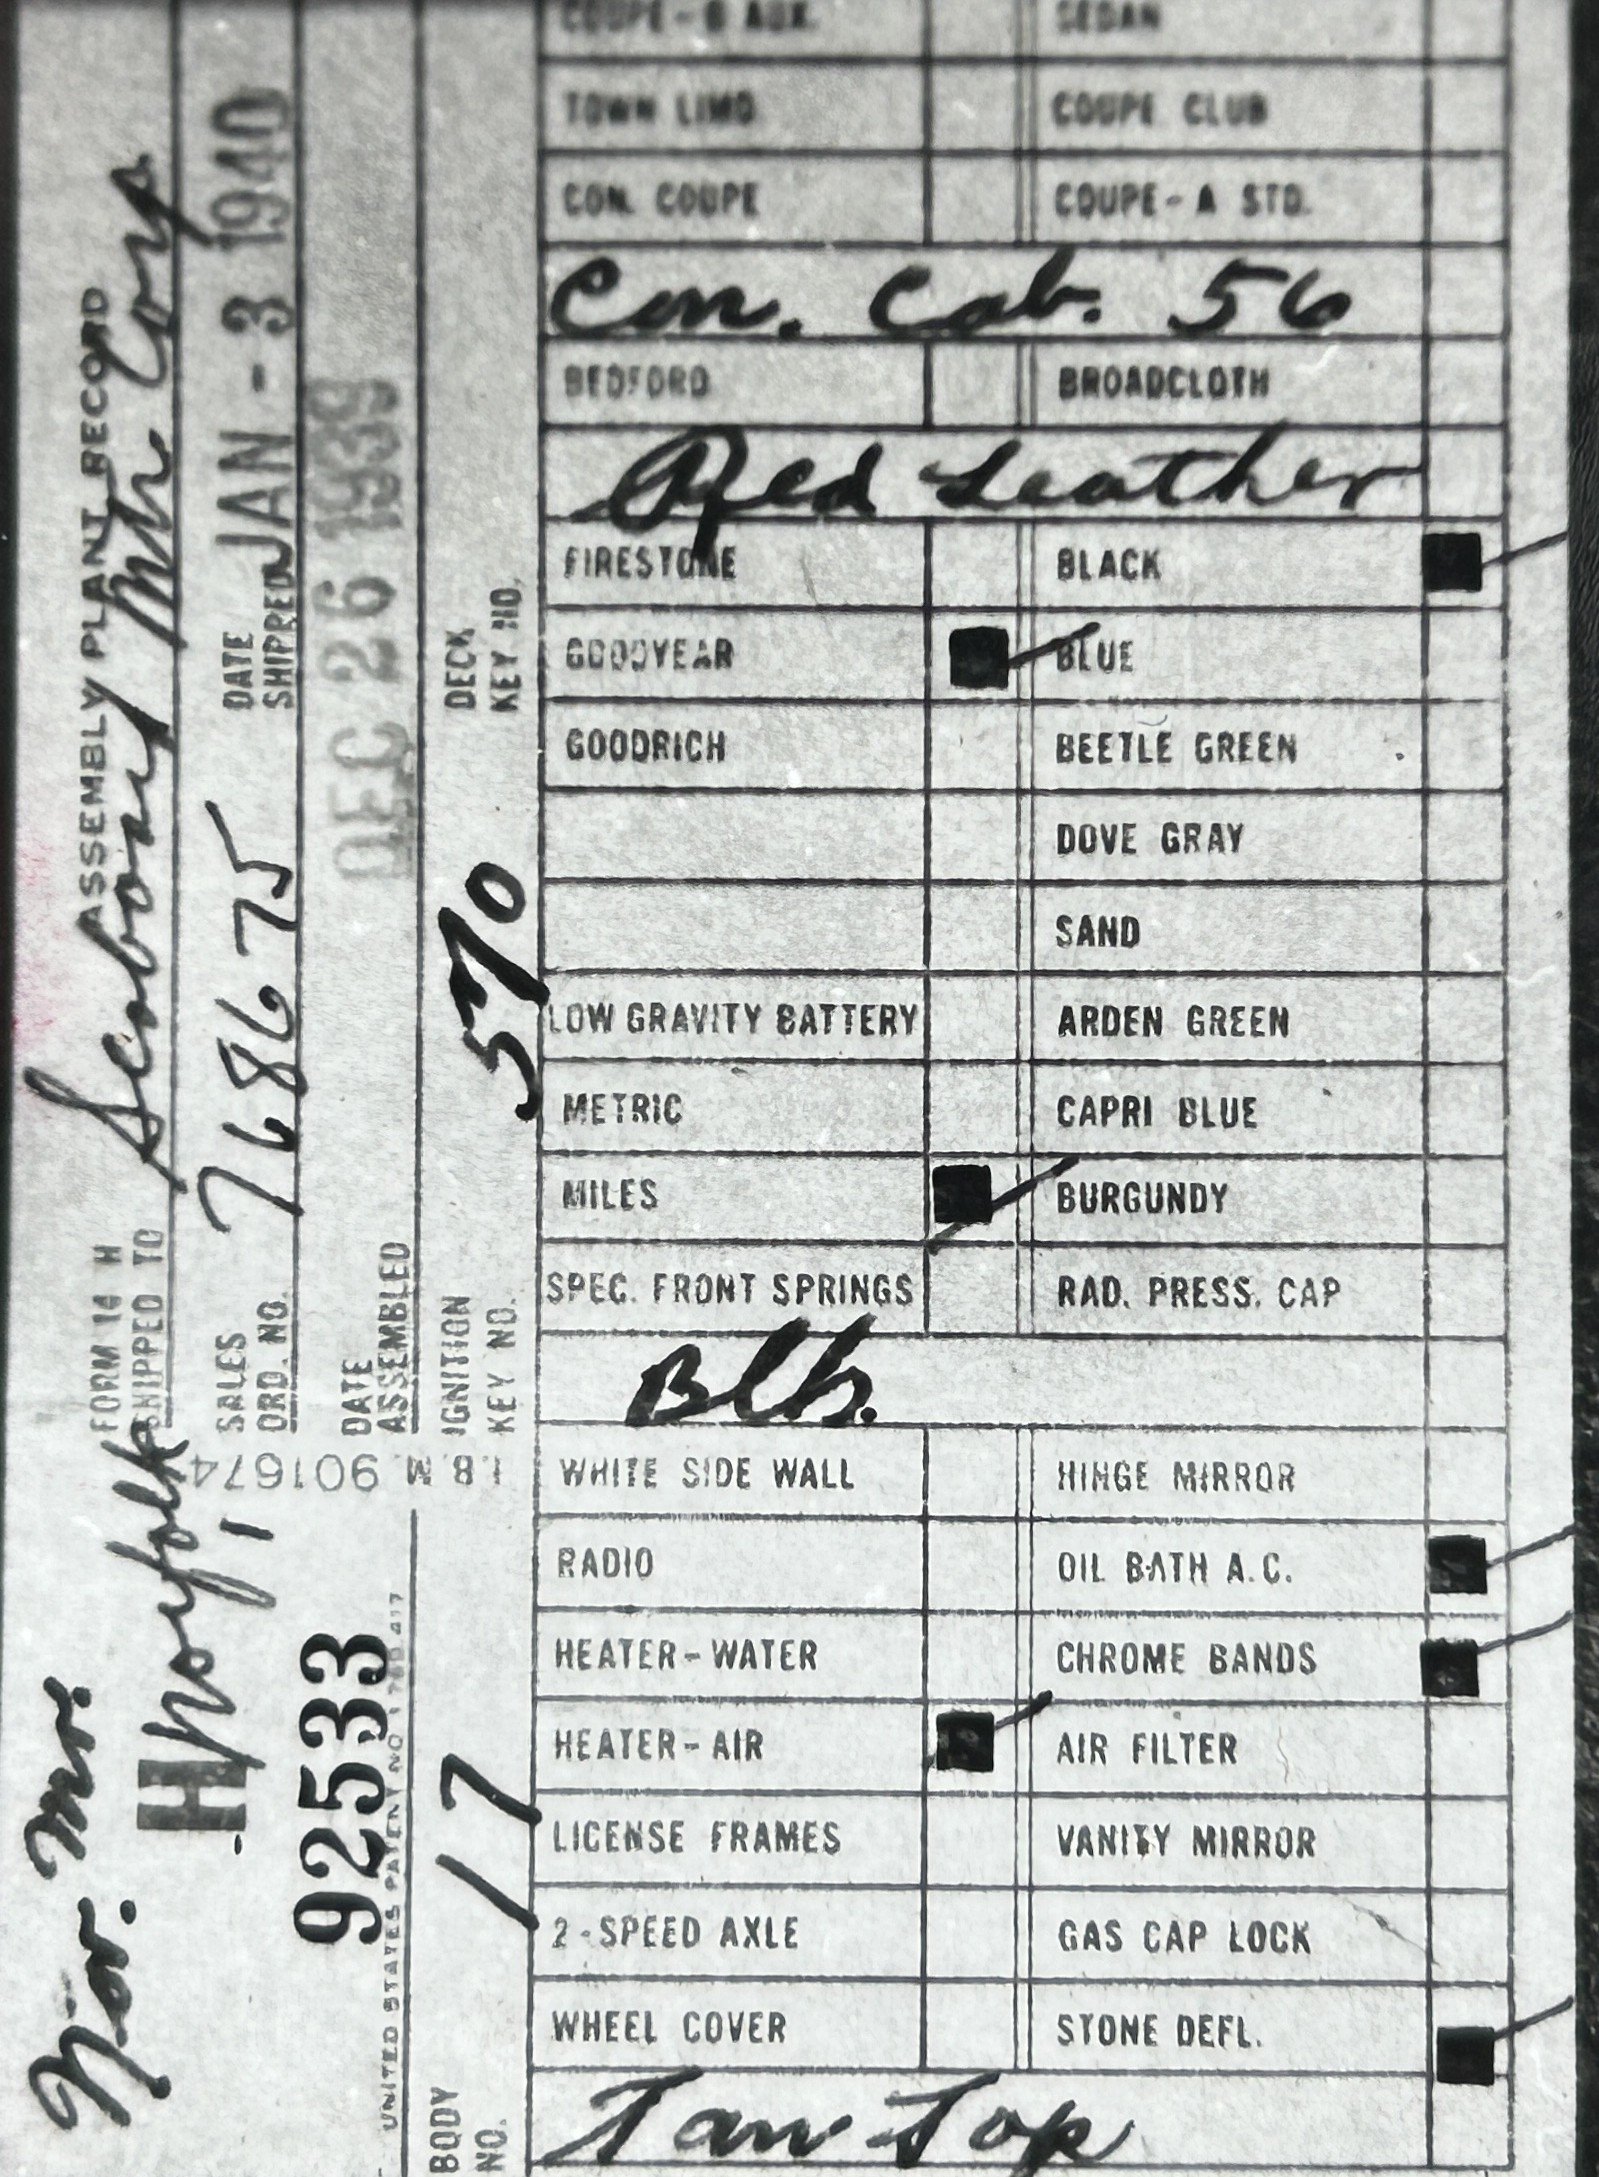 COUPE-B AUX. SEDAN
TOWN LIMO. COUPE CLUB
CON. COUPE COUPE-A STD.
Con. Cab. 56
BEDFORD BROADCLOTH
Red Leather
FIRESTONE BLACK
GOODYEAR BLUE
GOODRICH BEETLE GREEN
DOVE GRAY
SAND
LOW GRAVITY BATTERY ARDEN GREEN
METRIC CAPRI BLUE
MILES BURGUNDY
SPEC. FRONT SPRINGS RAD. PRESS. CAP
Blk.
WHITE SIDE WALL HINGE MIRROR
RADIO OIL BATH A.C.
HEATER-WATER CHROME BANDS
HEATER-AIR AIR FILTER
LICENSE FRAMES VANITY MIRROR
2-SPEED AXLE GAS CAP LOCK
WHEEL COVER STONE DEFL.
Tan Top
FORM 14 H ASSEMBLY PLANT RECORD
SHIPPED TO Seaboard Mtr Corp
Norfolk
SALES ORD. NO. 768675 DATE SHIPPED JAN - 3 1940
DATE ASSEMBLED DEC 26 1939
IGNITION KEY NO. 570 DECK KEY NO.
I.B.M. 901674
H 92533
UNITED STATES PATENT NO.
BODY NO. 17